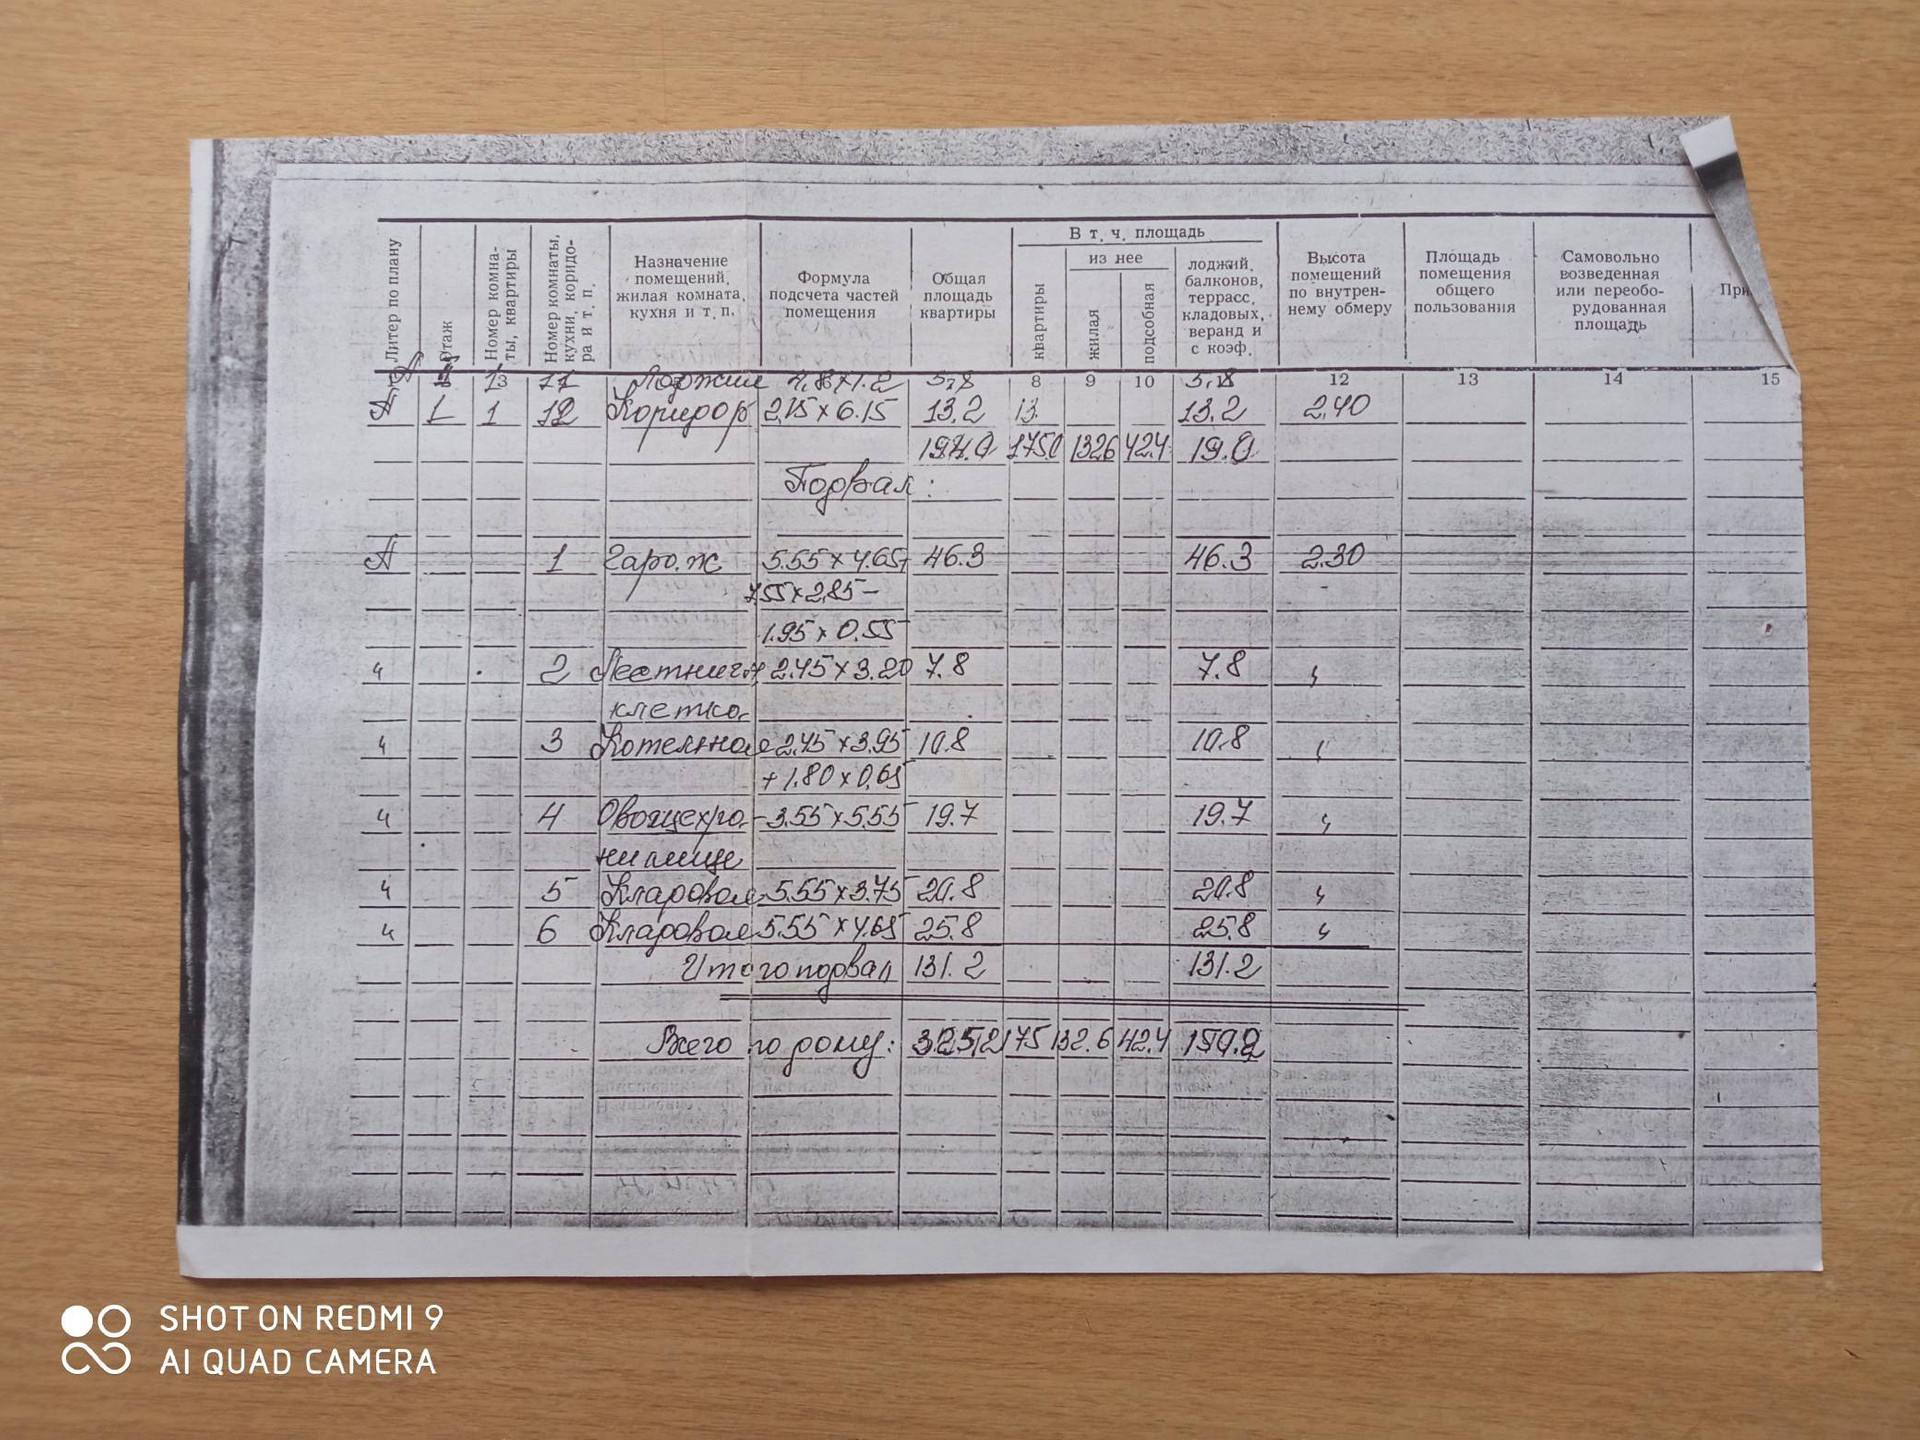 В т. ч. площадь
из нее
Литер по плану
Этаж
Номер комна-
ты, квартиры
Номер комнаты,
кухни, коридо-
ра и т. п.
Назначение
помещений,
жилая комната,
кухня и т. п.
Формула
подсчета частей
помещения
Общая
площадь
квартиры
квартиры
жилая
подсобная
лоджий,
балконов,
террасс,
кладовых,
веранд и
с коэф.
Высота
помещений
по внутрен-
нему обмеру
Площадь
помещения
общего
пользования
Самовольно
возведенная
или переобо-
рудованная
площадь
При
1 11 Лоджия 4.8×1.2 5,8 8 9 10 5,8 12 13 14 15
А 1 1 12 Коридор 2,15×6.15 13.2 13. 13.2 2,40
194.0 175.0 132.6 42.4 19.0
Подвал:
А 1 Гараж 5.55×4.65+ 46.3 46.3 2.30
7.55×2.85-
1.95×0.55
" 2 Лестнич. 2.45×3.20 7.8 7.8 "
клетка
" 3 Котельная 2.45×3.95 10.8 10.8 "
+1.80×0,65
" 4 Овощехра- 3.55×5.55 19.7 19.7 "
нилище
" 5 Кладовая 5.55×3.75 20.8 20.8 "
" 6 Кладовая 5.55×4.65 25.8 25.8 "
Итого подвал 131.2 131.2
Всего по дому: 325,2 175 132.6 42.4 150.2
SHOT ON REDMI 9
AI QUAD CAMERA